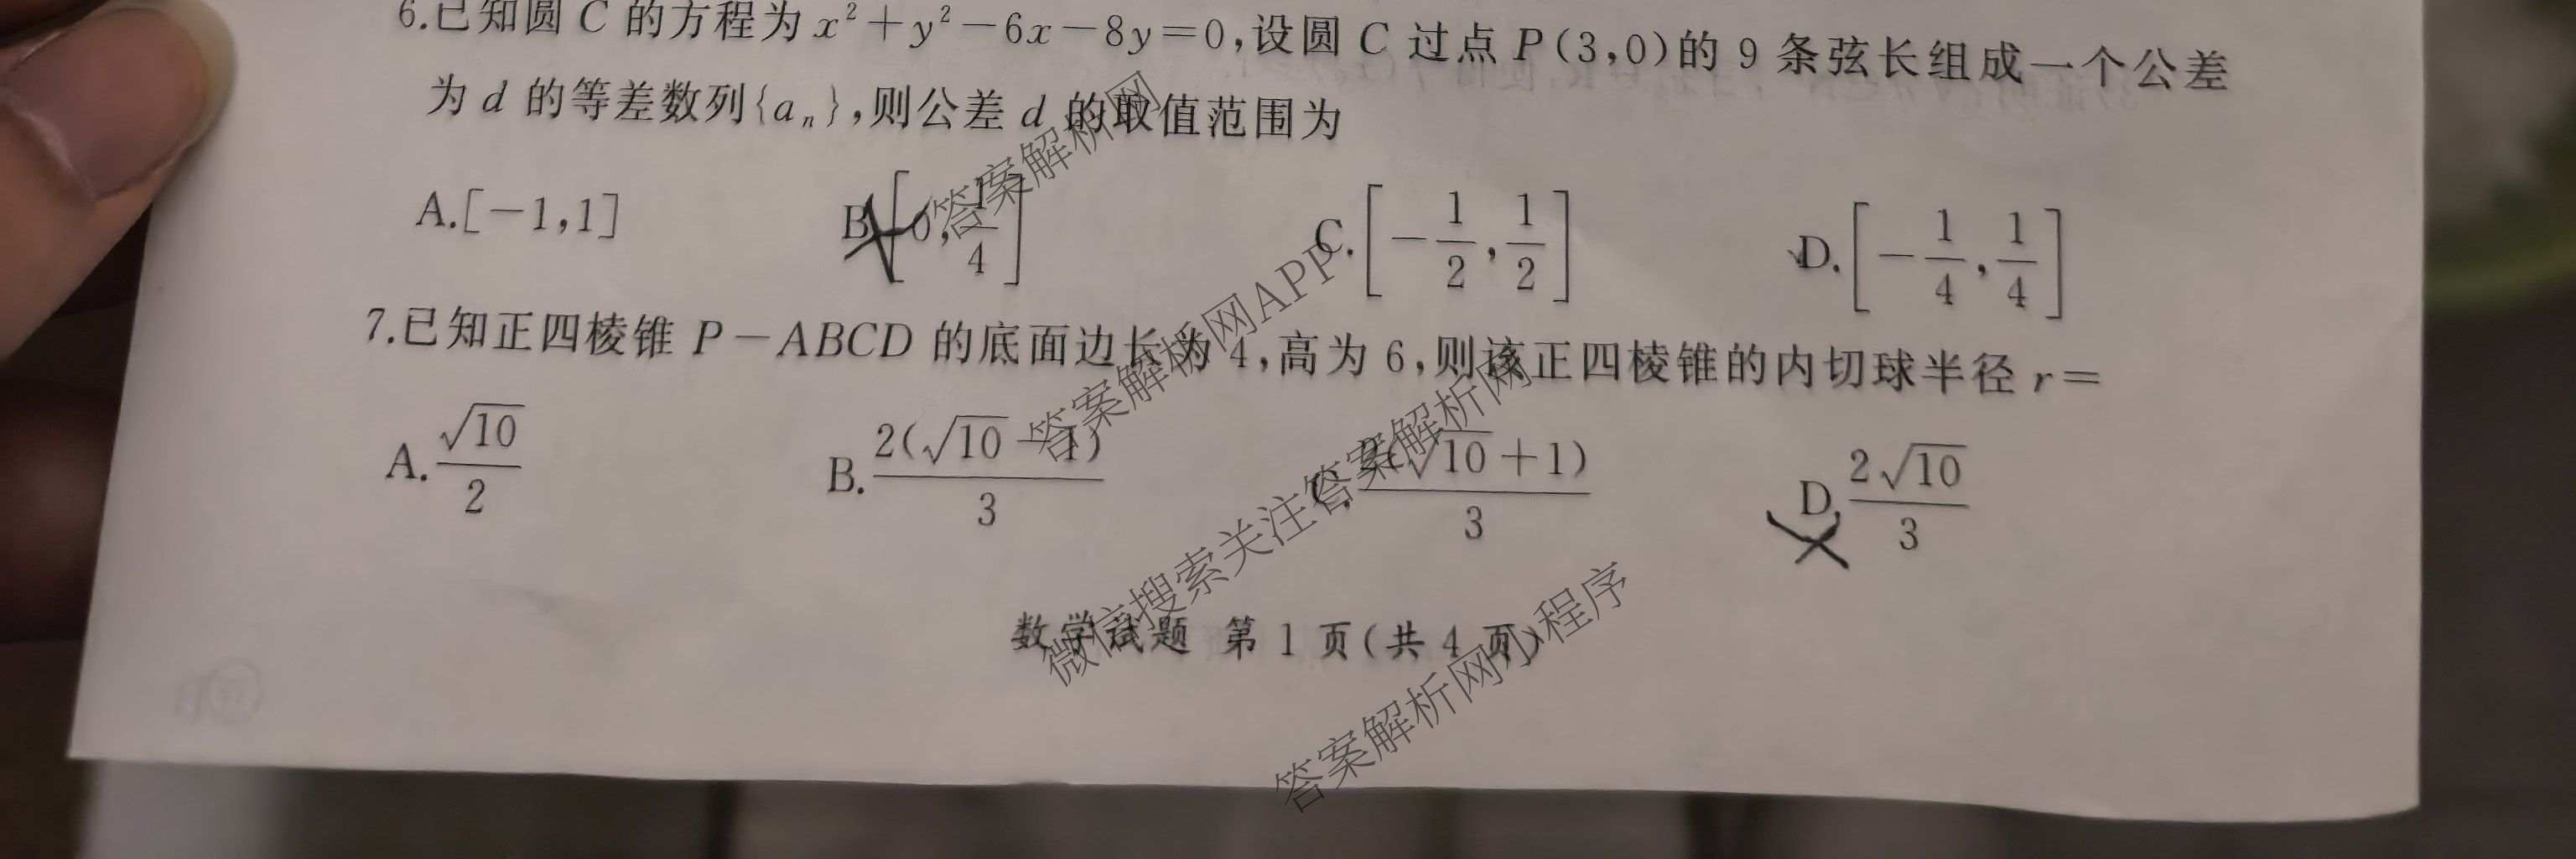 6.已知圆 C 的方程为 x²+y²-6x-8y=0,设圆 C 过点 P(3,0)的 9 条弦长组成一个公差
为 d 的等差数列{aₙ},则公差 d 的取值范围为
A.[-1,1] B.[0,1/4] C.[-1/2,1/2] D.[-1/4,1/4]
7.已知正四棱锥 P-ABCD 的底面边长为 4,高为 6,则该正四棱锥的内切球半径 r=
A.√10/2 B.2(√10-1)/3 C.2(√10+1)/3 D.2√10/3
数学试题 第 1 页(共 4 页)
答案解析网
答案解析网APP
微信搜索关注答案解析网
答案解析网小程序